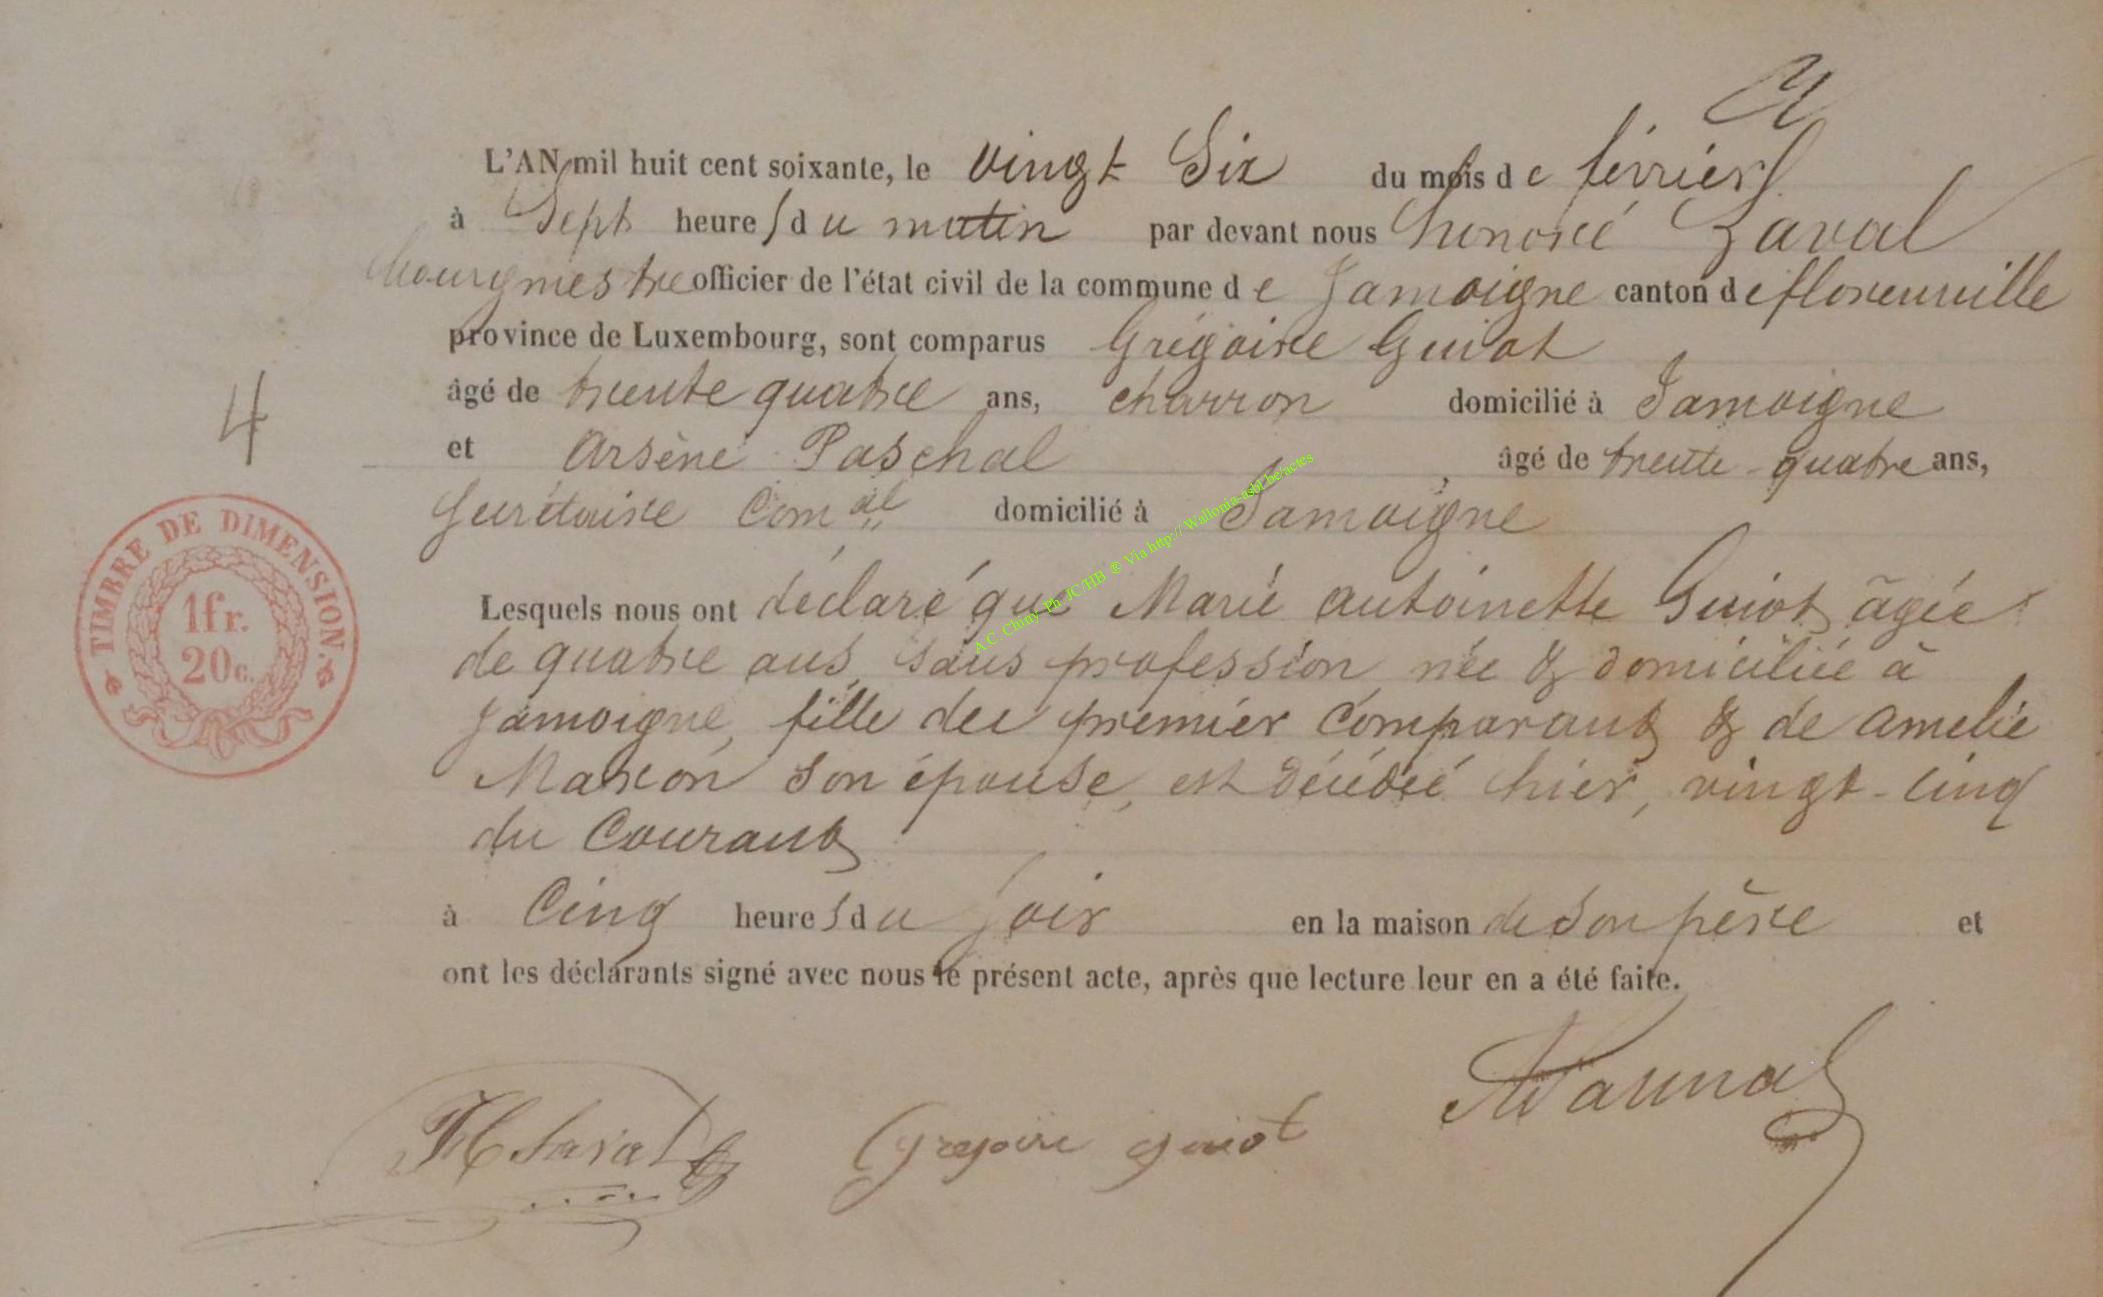 L'AN mil huit cent soixante, le vingt Six du mois de février
à Sept heures du matin par devant nous honoré Laval
bourgmestre officier de l'état civil de la commune de Jamoigne canton de florenville
province de Luxembourg, sont comparus Grégoire Guiot
âgé de trente quatre ans, charron domicilié à Jamoigne
4
et Arsène Paschal, âgé de trente quatre ans,
Secrétaire Comal domicilié à Jamoigne
TIMBRE DE DIMENSION.
1fr.
20c.
A.C. Chiny-Ph JC/HB ® Via http://Wallonia-asbl.be/actes
Lesquels nous ont déclaré que Marie antoinette Guiot, âgée
de quatre ans, sans profession, née & domiciliée à
Jamoigne, fille du premier Comparant & de amelie
Marson son épouse, est décédée hier, vingt-cinq
du Courant
à Cinq heures du Soir en la maison de Son père et
ont les déclarants signé avec nous le présent acte, après que lecture leur en a été faite.
H Laval Gregoire guiot